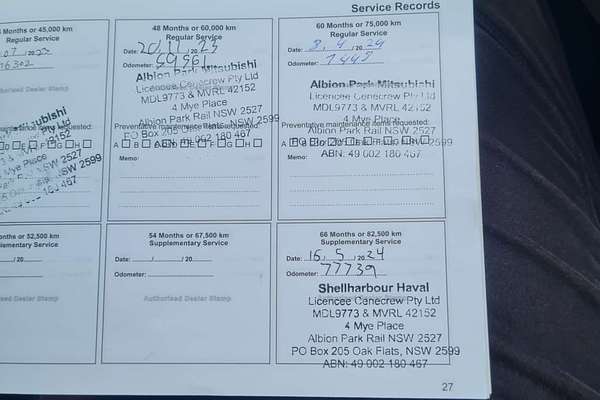 Service Records
Months or 45,000 km
Regular Service
/ 07 / 20
76302
Authorised Dealer Stamp
ubishi
Ltd
42152
Mye Place
NSW 2527
NSW 2599
467
48 Months or 60,000 km
Regular Service
Date: 20, 11, 20 23
Odometer: 59961
Albion Park Mitsubishi
Licencee Cenecrew Pty Ltd
MDL9773 & MVRL 42152
4 Mye Place
Albion Park Rail NSW 2527
Preventive maintenance items requested:
PO Box 205 Oak Flats, NSW 2599
A B
ABN: 49 002 180 467
Memo:
60 Months or 75,000 km
Regular Service
Date: 3, 4, 20 24
Odometer:
Albion Park Mitsubishi
Licencee Cenecrew Pty Ltd
MDL9773 & MVRL 42152
4 Mye Place
Albion Park Rail NSW 2527
Preventive maintenance items requested:
PO Box 205 Oak Flats, NSW 2599
ABN: 49 002 180 467
Memo:
Months or 52,500 km
Supplementary Service
/ 20
Authorised Dealer Stamp
54 Months or 67,500 km
Supplementary Service
Date: / / 20
Odometer:
Authorised Dealer Stamp
66 Months or 82,500 km
Supplementary Service
Date: 16, 5, 20 24
Odometer: 77739
Shellharbour Haval
Licencee Cenecrew Pty Ltd
MDL9773 & MVRL 42152
4 Mye Place
Albion Park Rail NSW 2527
PO Box 205 Oak Flats, NSW 2599
ABN: 49 002 180 467
27